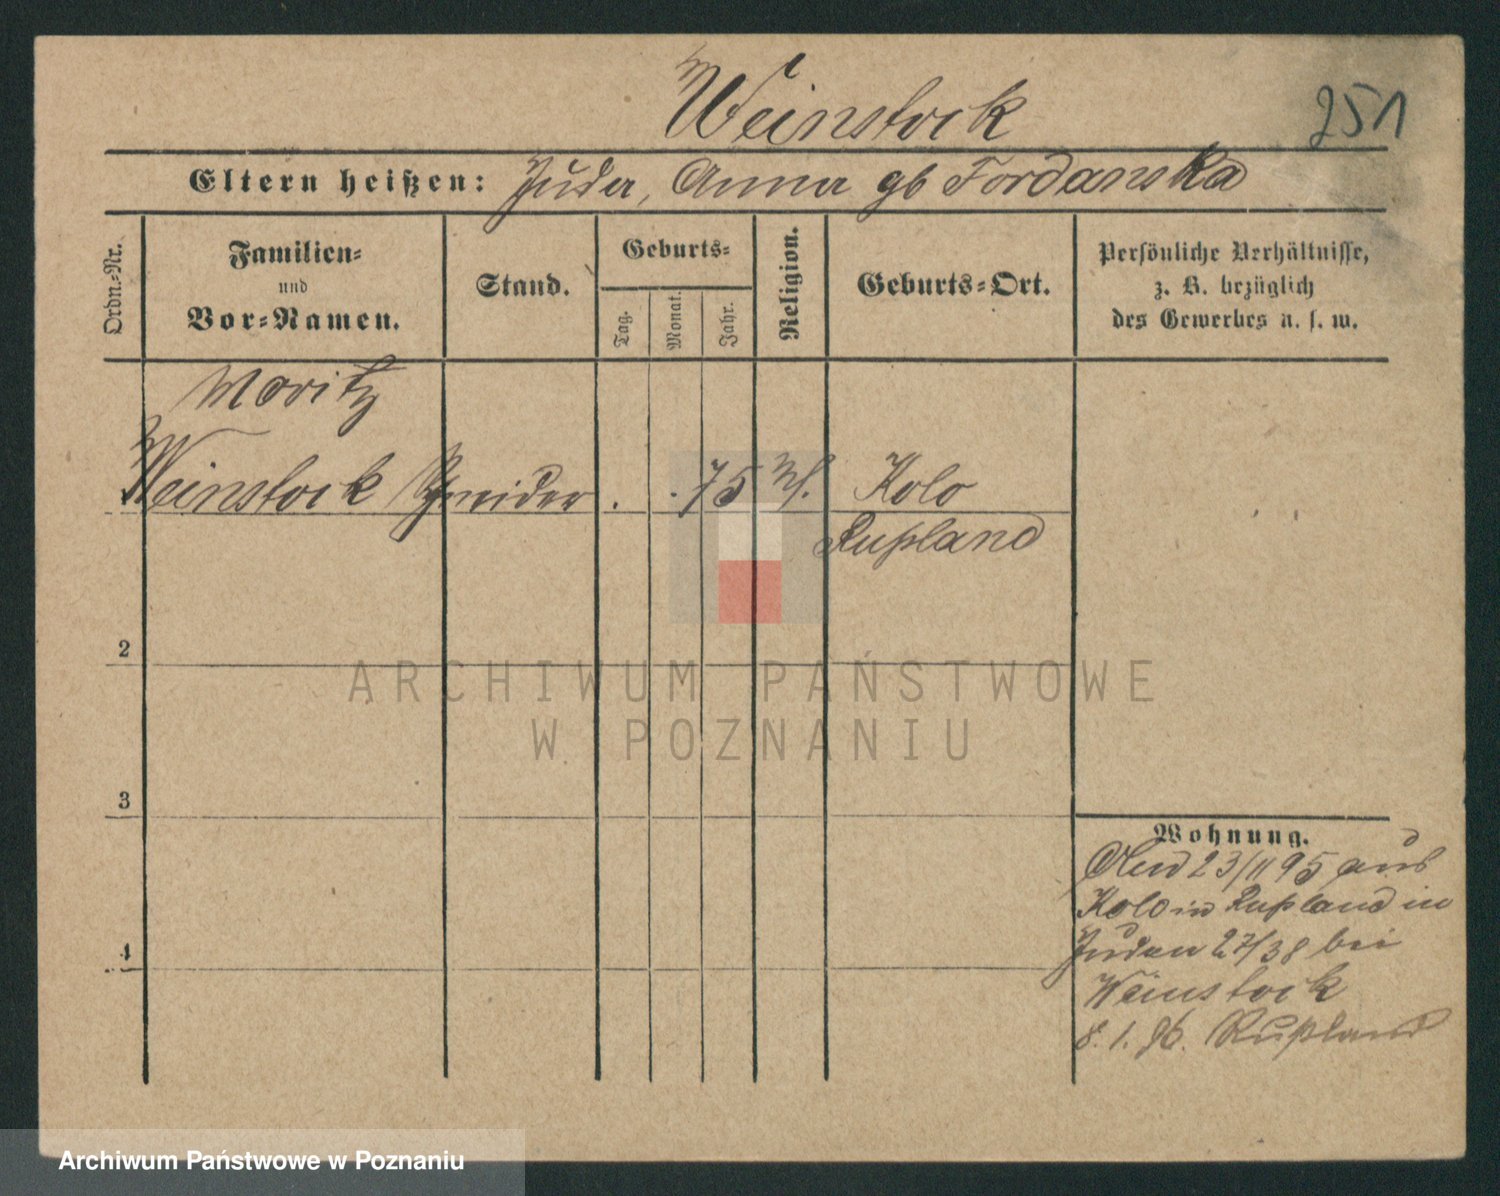 Weinstock
251
Eltern heißen: Juda, Anna gb Fordanska
Ordn.-Nr.
Familien-
und
Vor-Namen.
Stand.
Geburts-
Tag.
Monat.
Jahr.
Religion.
Geburts-Ort.
Persönliche Verhältnisse,
z. B. bezüglich
des Gewerbes u. s. w.
Moritz
Weinstock Schneider . . 75 Kolo
Rußland
2
3
4
Wohnung.
23/11 95 aus
Kolo in Rußland in
Juden 27/38 bei
Weinstock
8. 1. 96. Rußland
ARCHIWUM PAŃSTWOWE
W POZNANIU
Archiwum Państwowe w Poznaniu